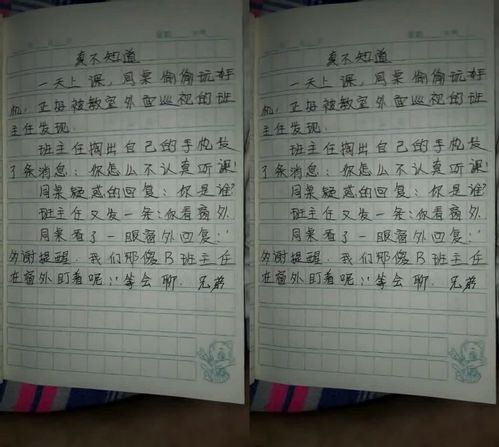 真不知道
一天上课，同桌偷偷玩手
机，正好被教室外面巡视的班
主任发现.
班主任掏出自己的手机发
了条消息：你怎么不认真听课!
同桌疑惑的回复：你是谁?
班主任又发一条：你看窗外.
同桌看了一眼窗外回复：
多谢提醒.我们那傻B班主任
在窗外盯着呢，等会聊.兄弟
真不知道
一天上课，同桌偷偷玩手
机，正好被教室外面巡视的班
主任发现.
班主任掏出自己的手机发
了条消息：你怎么不认真听课!
同桌疑惑的回复：你是谁?
班主任又发一条：你看窗外.
同桌看了一眼窗外回复：
多谢提醒.我们那傻B班主任
在窗外盯着呢，等会聊.兄弟